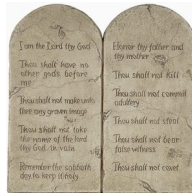 I am the Lord thy God
Thou shall have no
other gods before
me
Thou shall not make unto
thee any graven image
Thou shall not take
the name of the Lord
thy God, in vain
Remember the sabbath
day, to keep it holy.
Honor thy father and
thy mother
Thou shall not kill
Thou shall not commit
adultery
Thou shall not steal
Thou shall not bear
false witness
Thou shall not covet